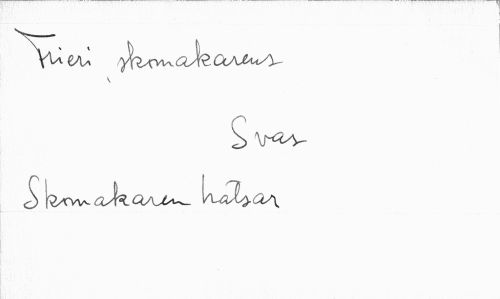 Frieri, skomakarens
Svar
Skomakaren hälsar